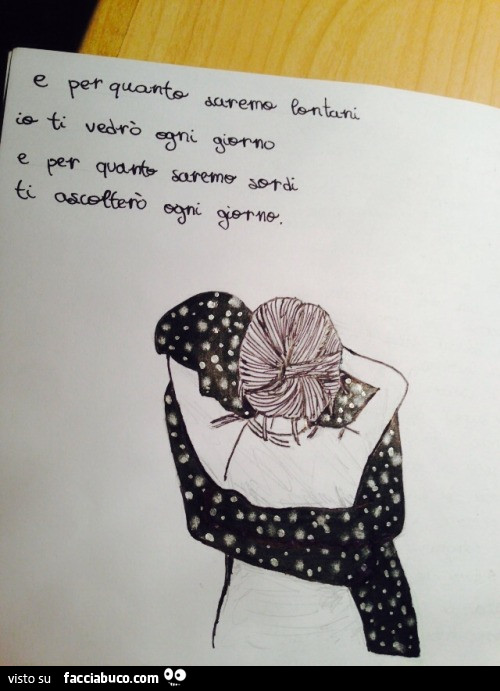 e per quanto saremo lontani
io ti vedrò ogni giorno
e per quanto saremo sordi
ti ascolterò ogni giorno.
visto su facciabuco.com